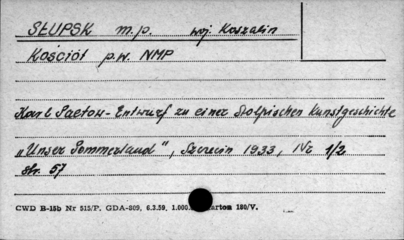 SŁUPSK m.p. woj. Koszalin
Kościół p.w. NMP
Karl Paetow - Entwurf zu einer Stolpischen Kunstgeschichte
„Unser Pommerland", Szczecin 1933, Nr 1/2
str. 57
CWD B-15b Nr 515/P. GDA-809, 6.3.59, 1.000. Karton 180/V.